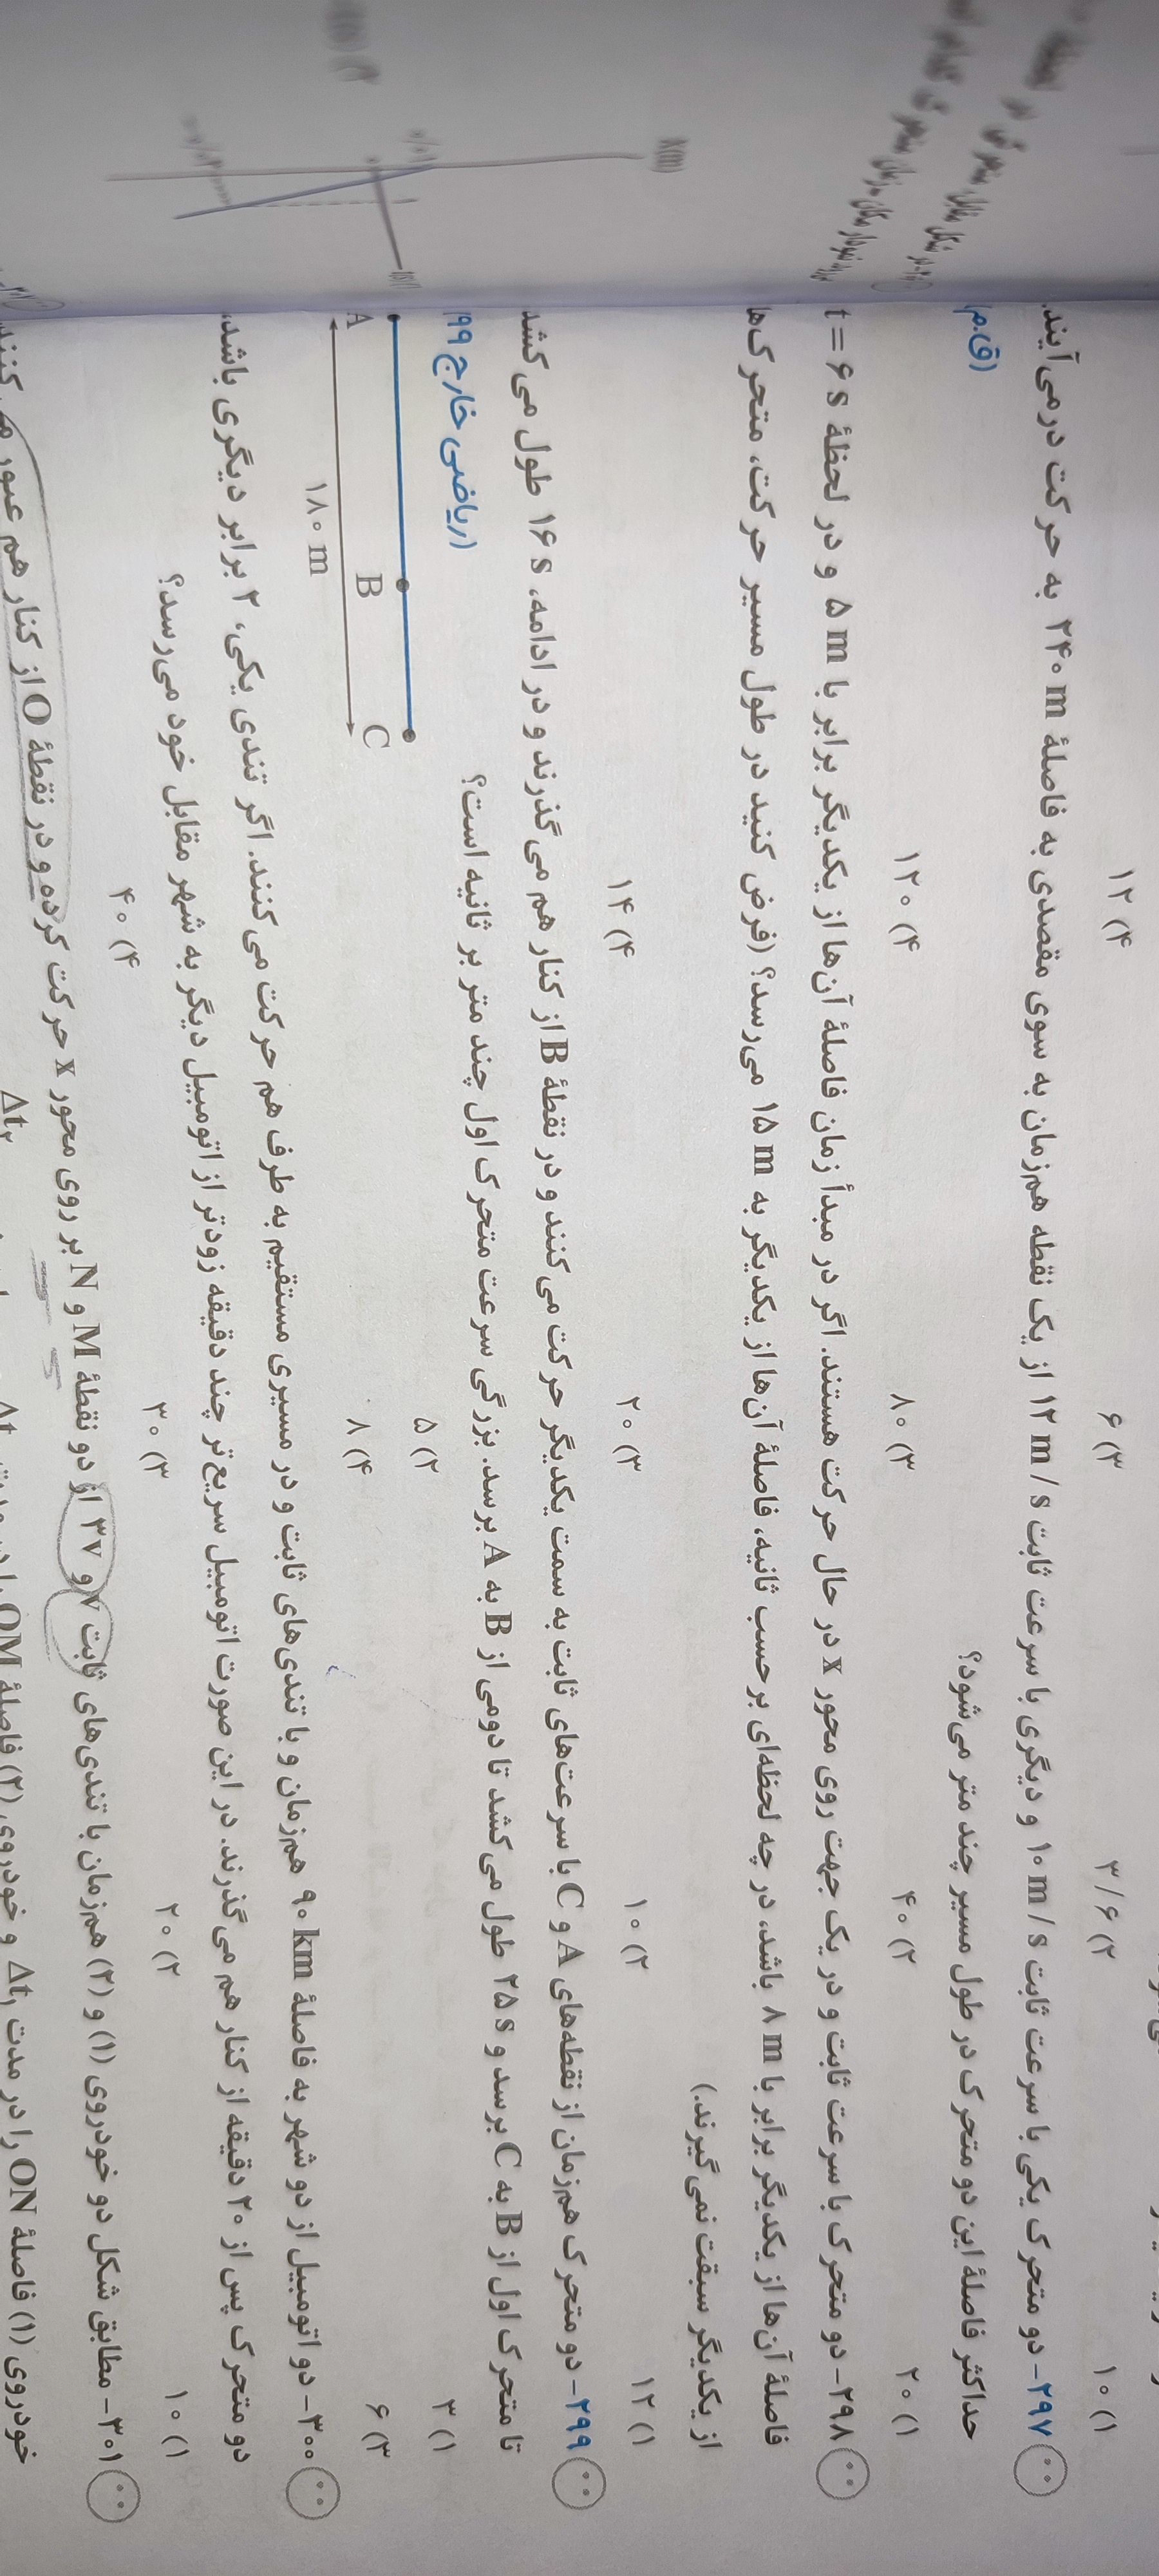 ۱) ۱۰ ۲) ۳/۶ ۳) ۶ ۴) ۱۲
۲۹۷- دو متحرک یکی با سرعت ثابت ۱۰ m/s و دیگری با سرعت ثابت ۱۲ m/s از یک نقطه هم‌زمان به سوی مقصدی به فاصلهٔ ۲۴۰ m به حرکت درمی‌آیند.
حداکثر فاصلهٔ این دو متحرک در طول مسیر چند متر می‌شود؟ (ق.م)
۱) ۲۰ ۲) ۴۰ ۳) ۸۰ ۴) ۱۲۰
۲۹۸- دو متحرک با سرعت ثابت و در یک جهت روی محور x در حال حرکت هستند. اگر در مبدأ زمان فاصلهٔ آن‌ها از یکدیگر برابر با ۵ m و در لحظهٔ t = ۶ s
فاصلهٔ آن‌ها از یکدیگر برابر با ۸ m باشد، در چه لحظه‌ای برحسب ثانیه، فاصلهٔ آن‌ها از یکدیگر به ۱۵ m می‌رسد؟ (فرض کنید در طول مسیر حرکت، متحرک‌ها
از یکدیگر سبقت نمی‌گیرند.)
۱) ۱۲ ۲) ۱۰ ۳) ۲۰ ۴) ۱۴
۲۹۹- دو متحرک هم‌زمان از نقطه‌های A و C با سرعت‌های ثابت به سمت یکدیگر حرکت می‌کنند و در نقطهٔ B از کنار هم می‌گذرند و در ادامه، ۱۶ s طول می‌کشد
تا متحرک اول از B به C برسد و ۲۵ s طول می‌کشد تا دومی از B به A برسد. بزرگی سرعت متحرک اول چند متر بر ثانیه است؟ (ریاضی خارج ۹۹)
۱) ۳ ۲) ۵
۳) ۶ ۴) ۸
A B C
۱۸۰ m
۳۰۰- دو اتومبیل از دو شهر به فاصلهٔ ۹۰ km هم‌زمان و با تندی‌های ثابت و در مسیری مستقیم به طرف هم حرکت می‌کنند. اگر تندی یکی، ۲ برابر دیگری باشد،
دو متحرک پس از ۲۰ دقیقه از کنار هم می‌گذرند. در این صورت اتومبیل سریع‌تر چند دقیقه زودتر از اتومبیل دیگر به شهر مقابل خود می‌رسد؟
۱) ۱۰ ۲) ۲۰ ۳) ۳۰ ۴) ۴۰
۳۰۱- مطابق شکل دو خودروی (۱) و (۲) هم‌زمان با تندی‌های ثابت v و ۳v از دو نقطهٔ M و N بر روی محور x حرکت کرده و در نقطهٔ O از کنار هم عبور می‌کنند
خودروی (۱) فاصلهٔ ON را در مدت Δt₁ و خودروی (۲) فاصلهٔ OM را در مدت
Δt₂